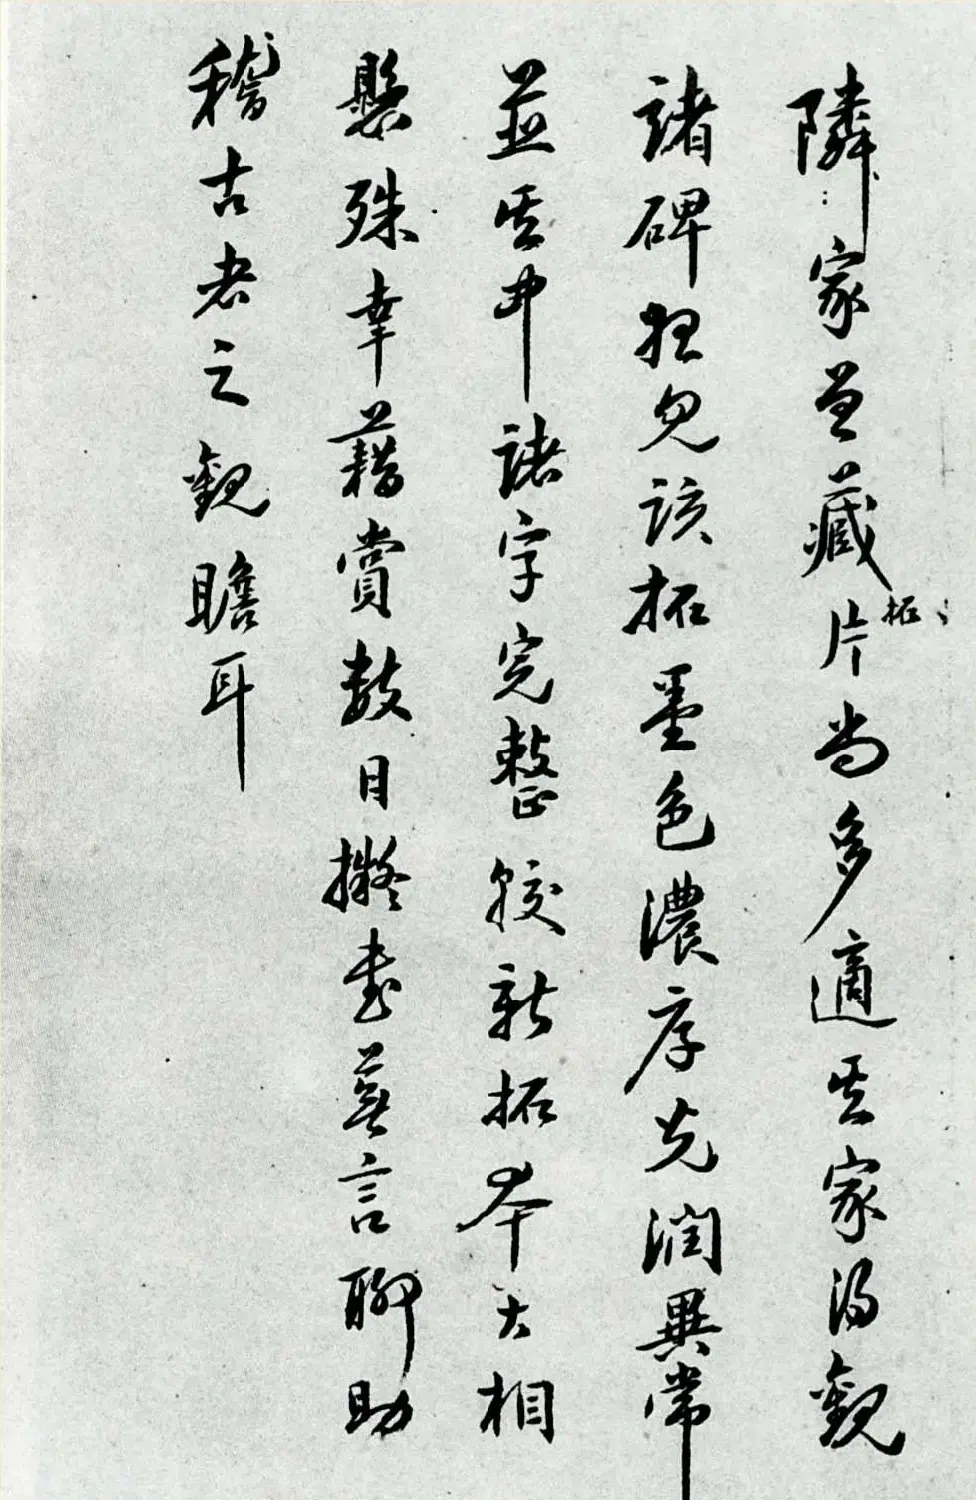 隣家呈藏拓片尚多適其家得觀
諸碑拓見該拓墨色濃厚光潤異常
並其中諸字完整較新拓本大相
懸殊幸藉賞数日擬書蕪言聊助
稽古者之觀瞻耳